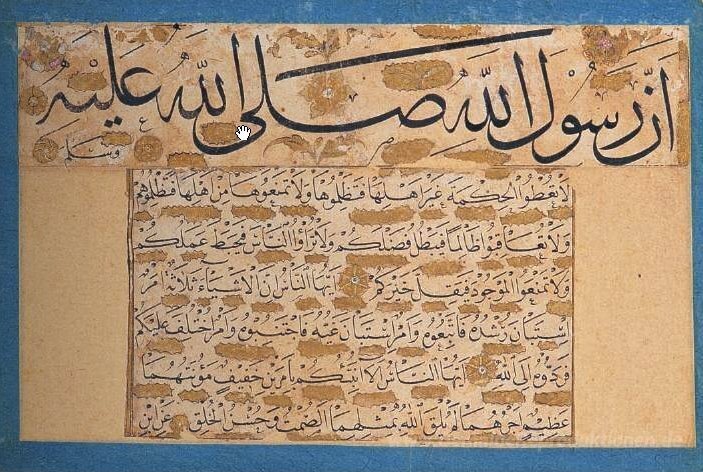 انّ رسول الله صلى الله عليه
وسلم
لا تعطوا الحكمة غير اهلها فتظلموها ولا تمنعوها من اهلها فتظلموهم
ولا تعاقبوا ظالما فيبطل فضلكم ولا تراؤا الناس فيحبط عملكم
ولا تمنعوا الموجود فيقل خيركم ايها الناس ان الاشياء ثلاثة امر
استبان رشده فاتبعوه وامر استبان غيه فاجتنبوه وامر اختلف عليكم
فردوه الى الله ايها الناس الا انبئكم بامرين خفيف مؤنتهما
عظيم اجرهما لم يلق الله بمثلهما الصمت وحسن الخلق عن ابن